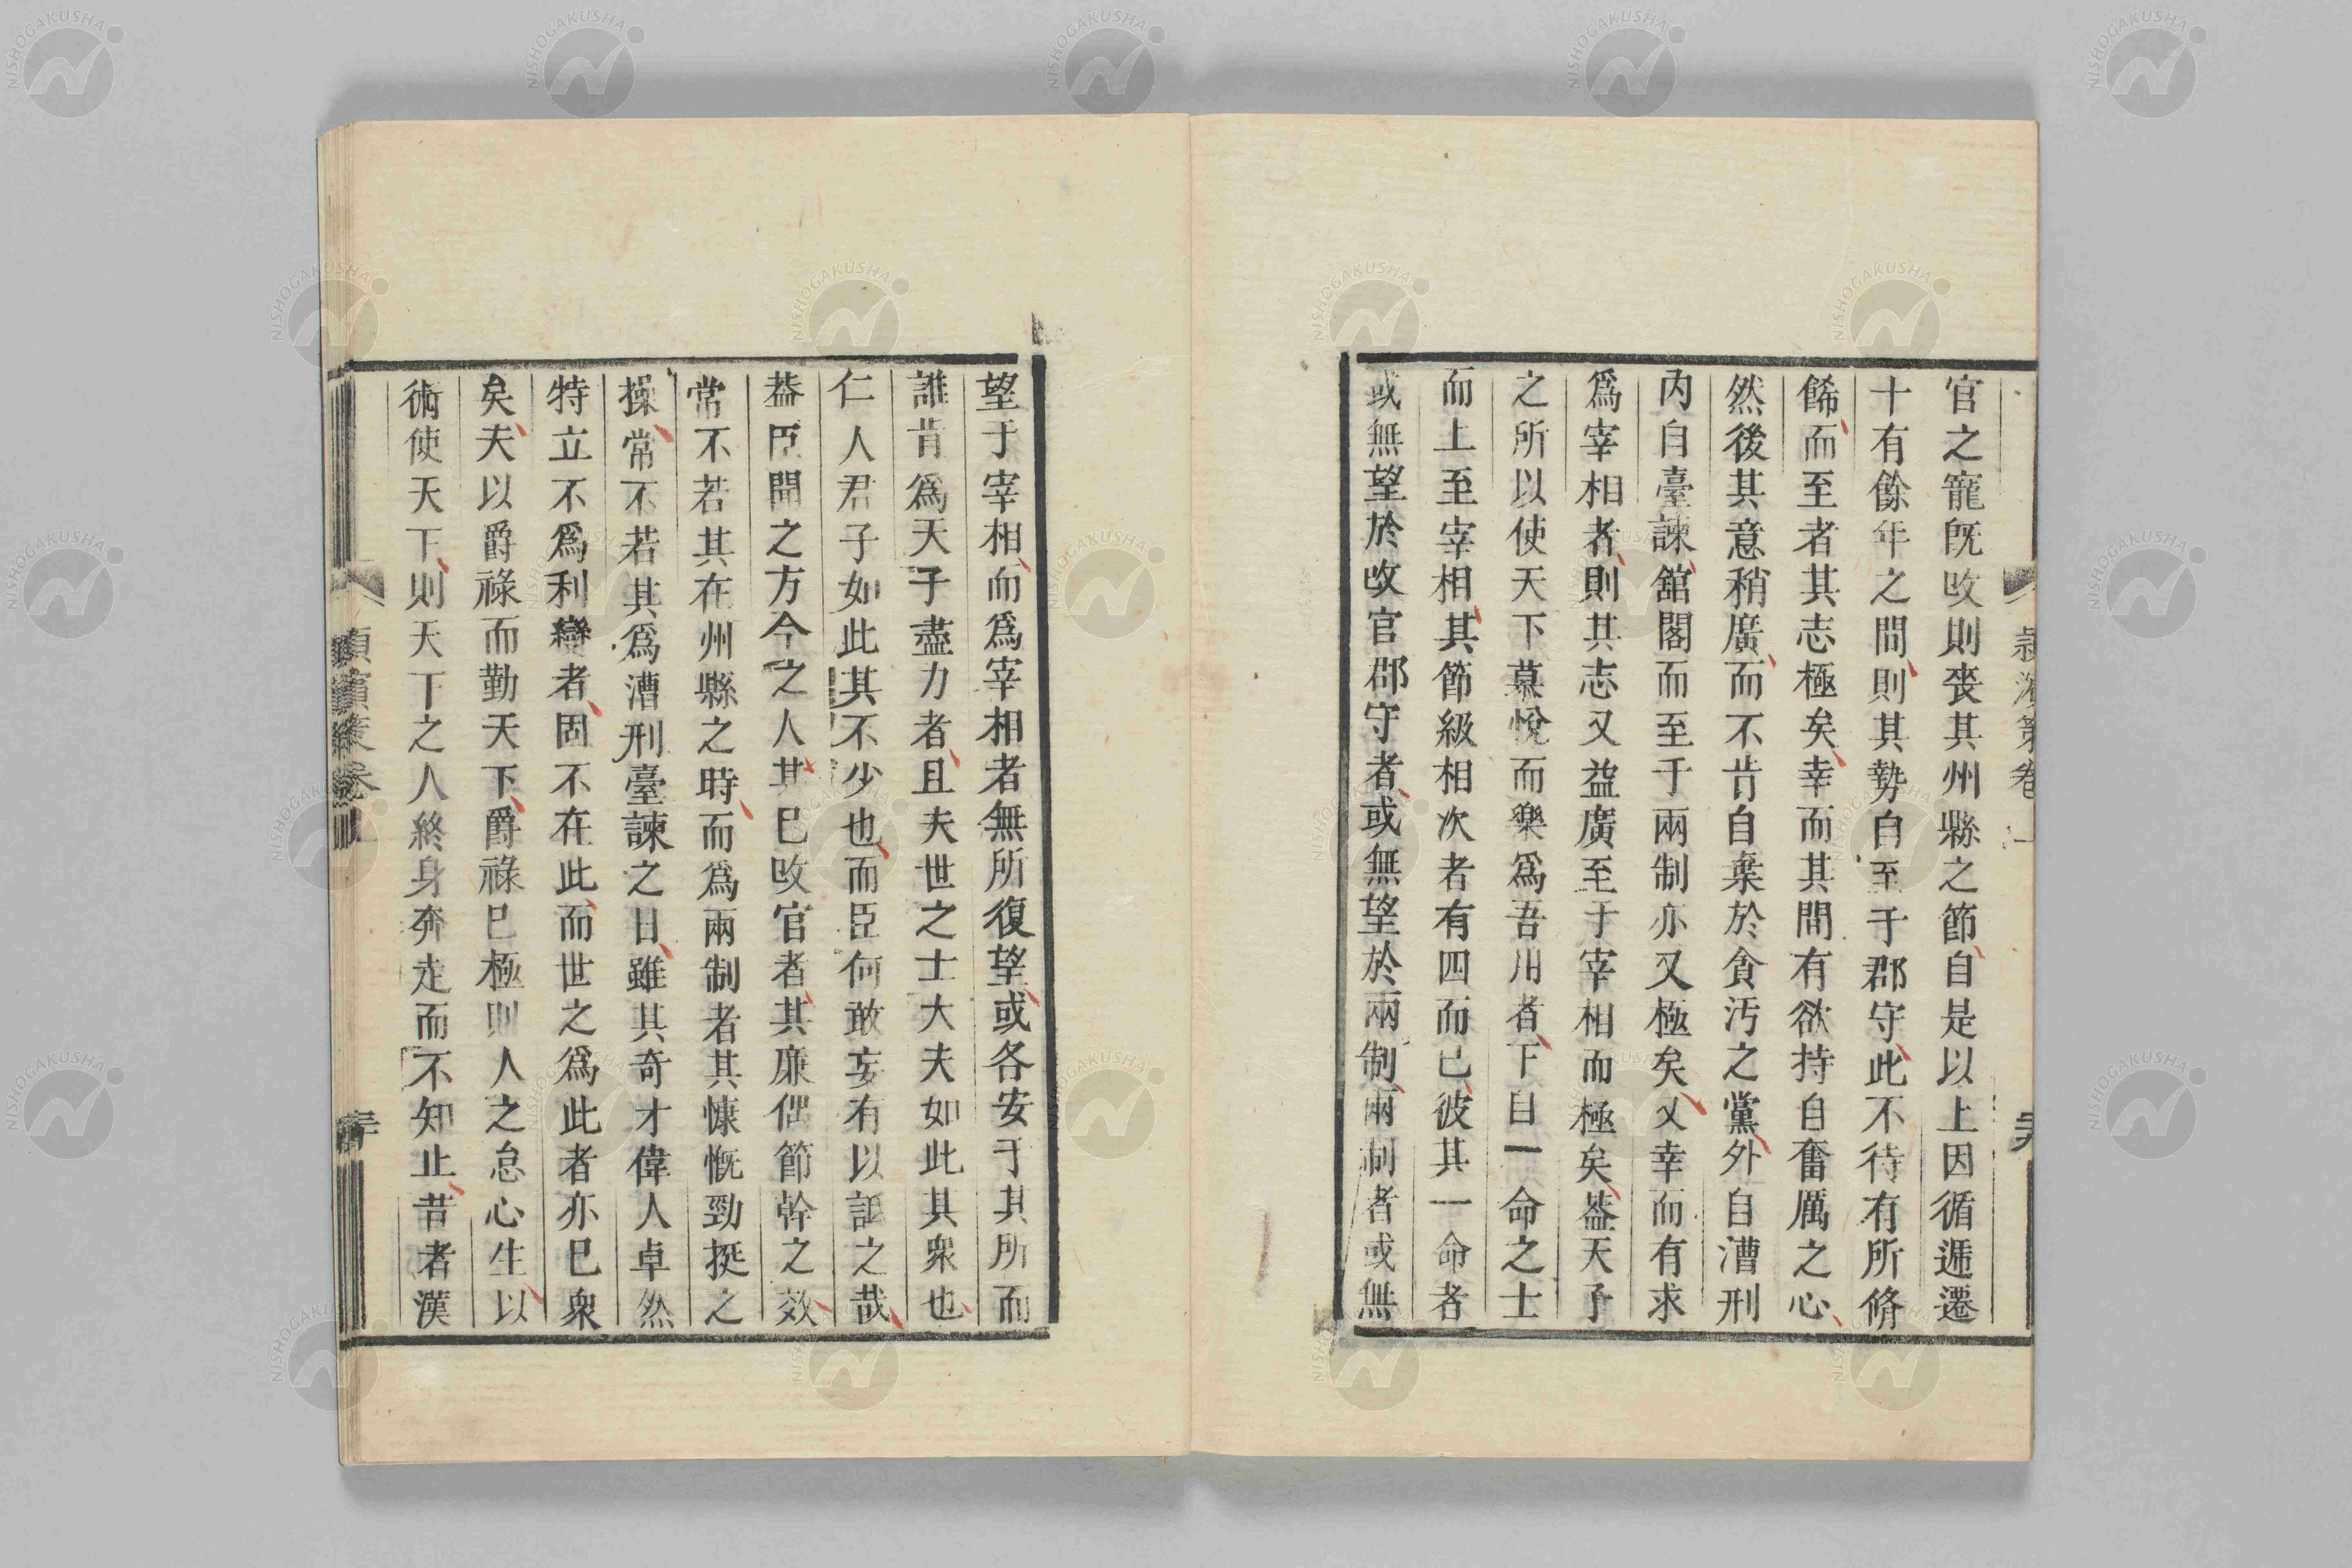 官之寵旣攺則喪其州縣之節自是以上因循遞遷
十有餘年之間則其勢自至于郡守此不待有所脩
餙而至者其志極矣幸而其間有欲持自奮厲之心
然後其意稍廣而不肯自棄於貪汚之黨外自漕刑
內自臺諫舘閣而至于兩制亦又極矣又幸而有求
爲宰相者則其志又益廣至于宰相而極矣葢天子
之所以使天下慕悅而樂爲吾用者下自一命之士
而上至宰相其節級相次者有四而已彼其一命者
或無望於攺官郡守者或無望於兩制兩制者或無
望于宰相而爲宰相者無所復望或各安于其所而
誰肯爲天子盡力者且夫世之士大夫如此其衆也
仁人君子如此其不少也而臣何敢妄有以詆之哉
葢臣聞之方今之人其已攺官者其廉隅節幹之效
常不若其在州縣之時而爲兩制者其慷慨勁挺之
操常不若其爲漕刑臺諫之日雖其奇才偉人卓然
特立不爲利變者固不在此而世之爲此者亦已衆
矣夫以爵祿而勤天下爵祿已極則人之怠心生以
術使天下則天下之人終身奔走而不知止昔者漢
卷
NISHOGAKUSHA